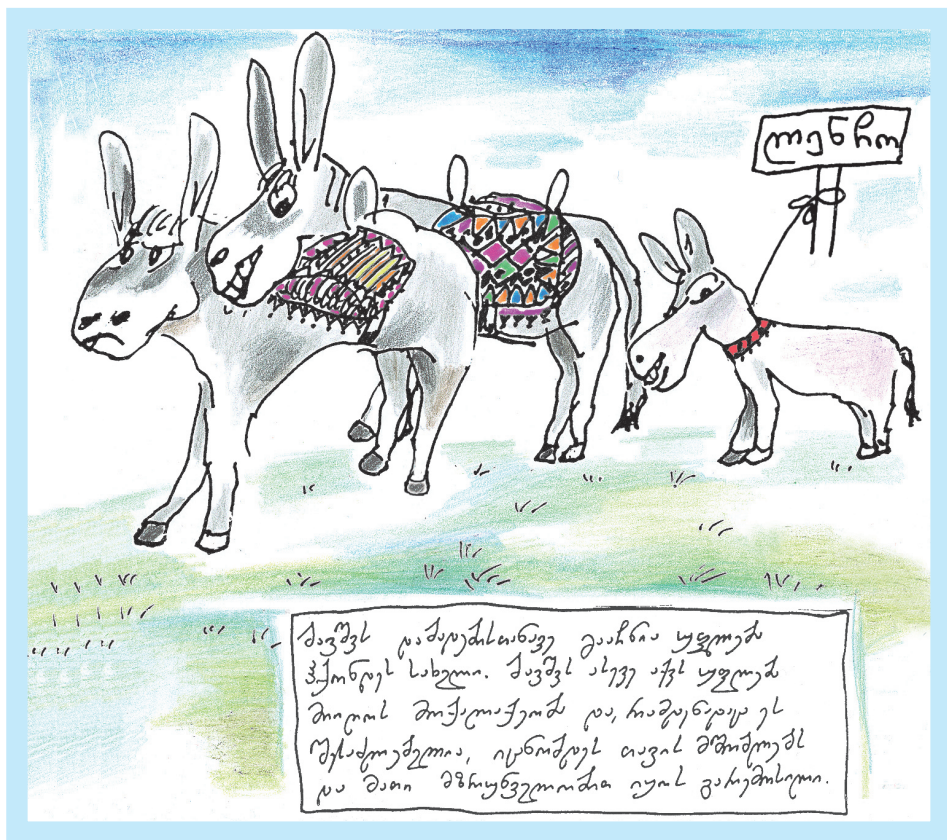 ლენჩო
ბავშვს დაბადებისთანავე გააჩნია უფლება
ჰქონდეს სახელი. ბავშვს ასევე აქვს უფლება
მიიღოს მოქალაქეობა და, რამდენადაც ეს
შესაძლებელია, იცნობდეს თავის მშობლებს
და მათი მზრუნველობით იყოს გარემოსილი.